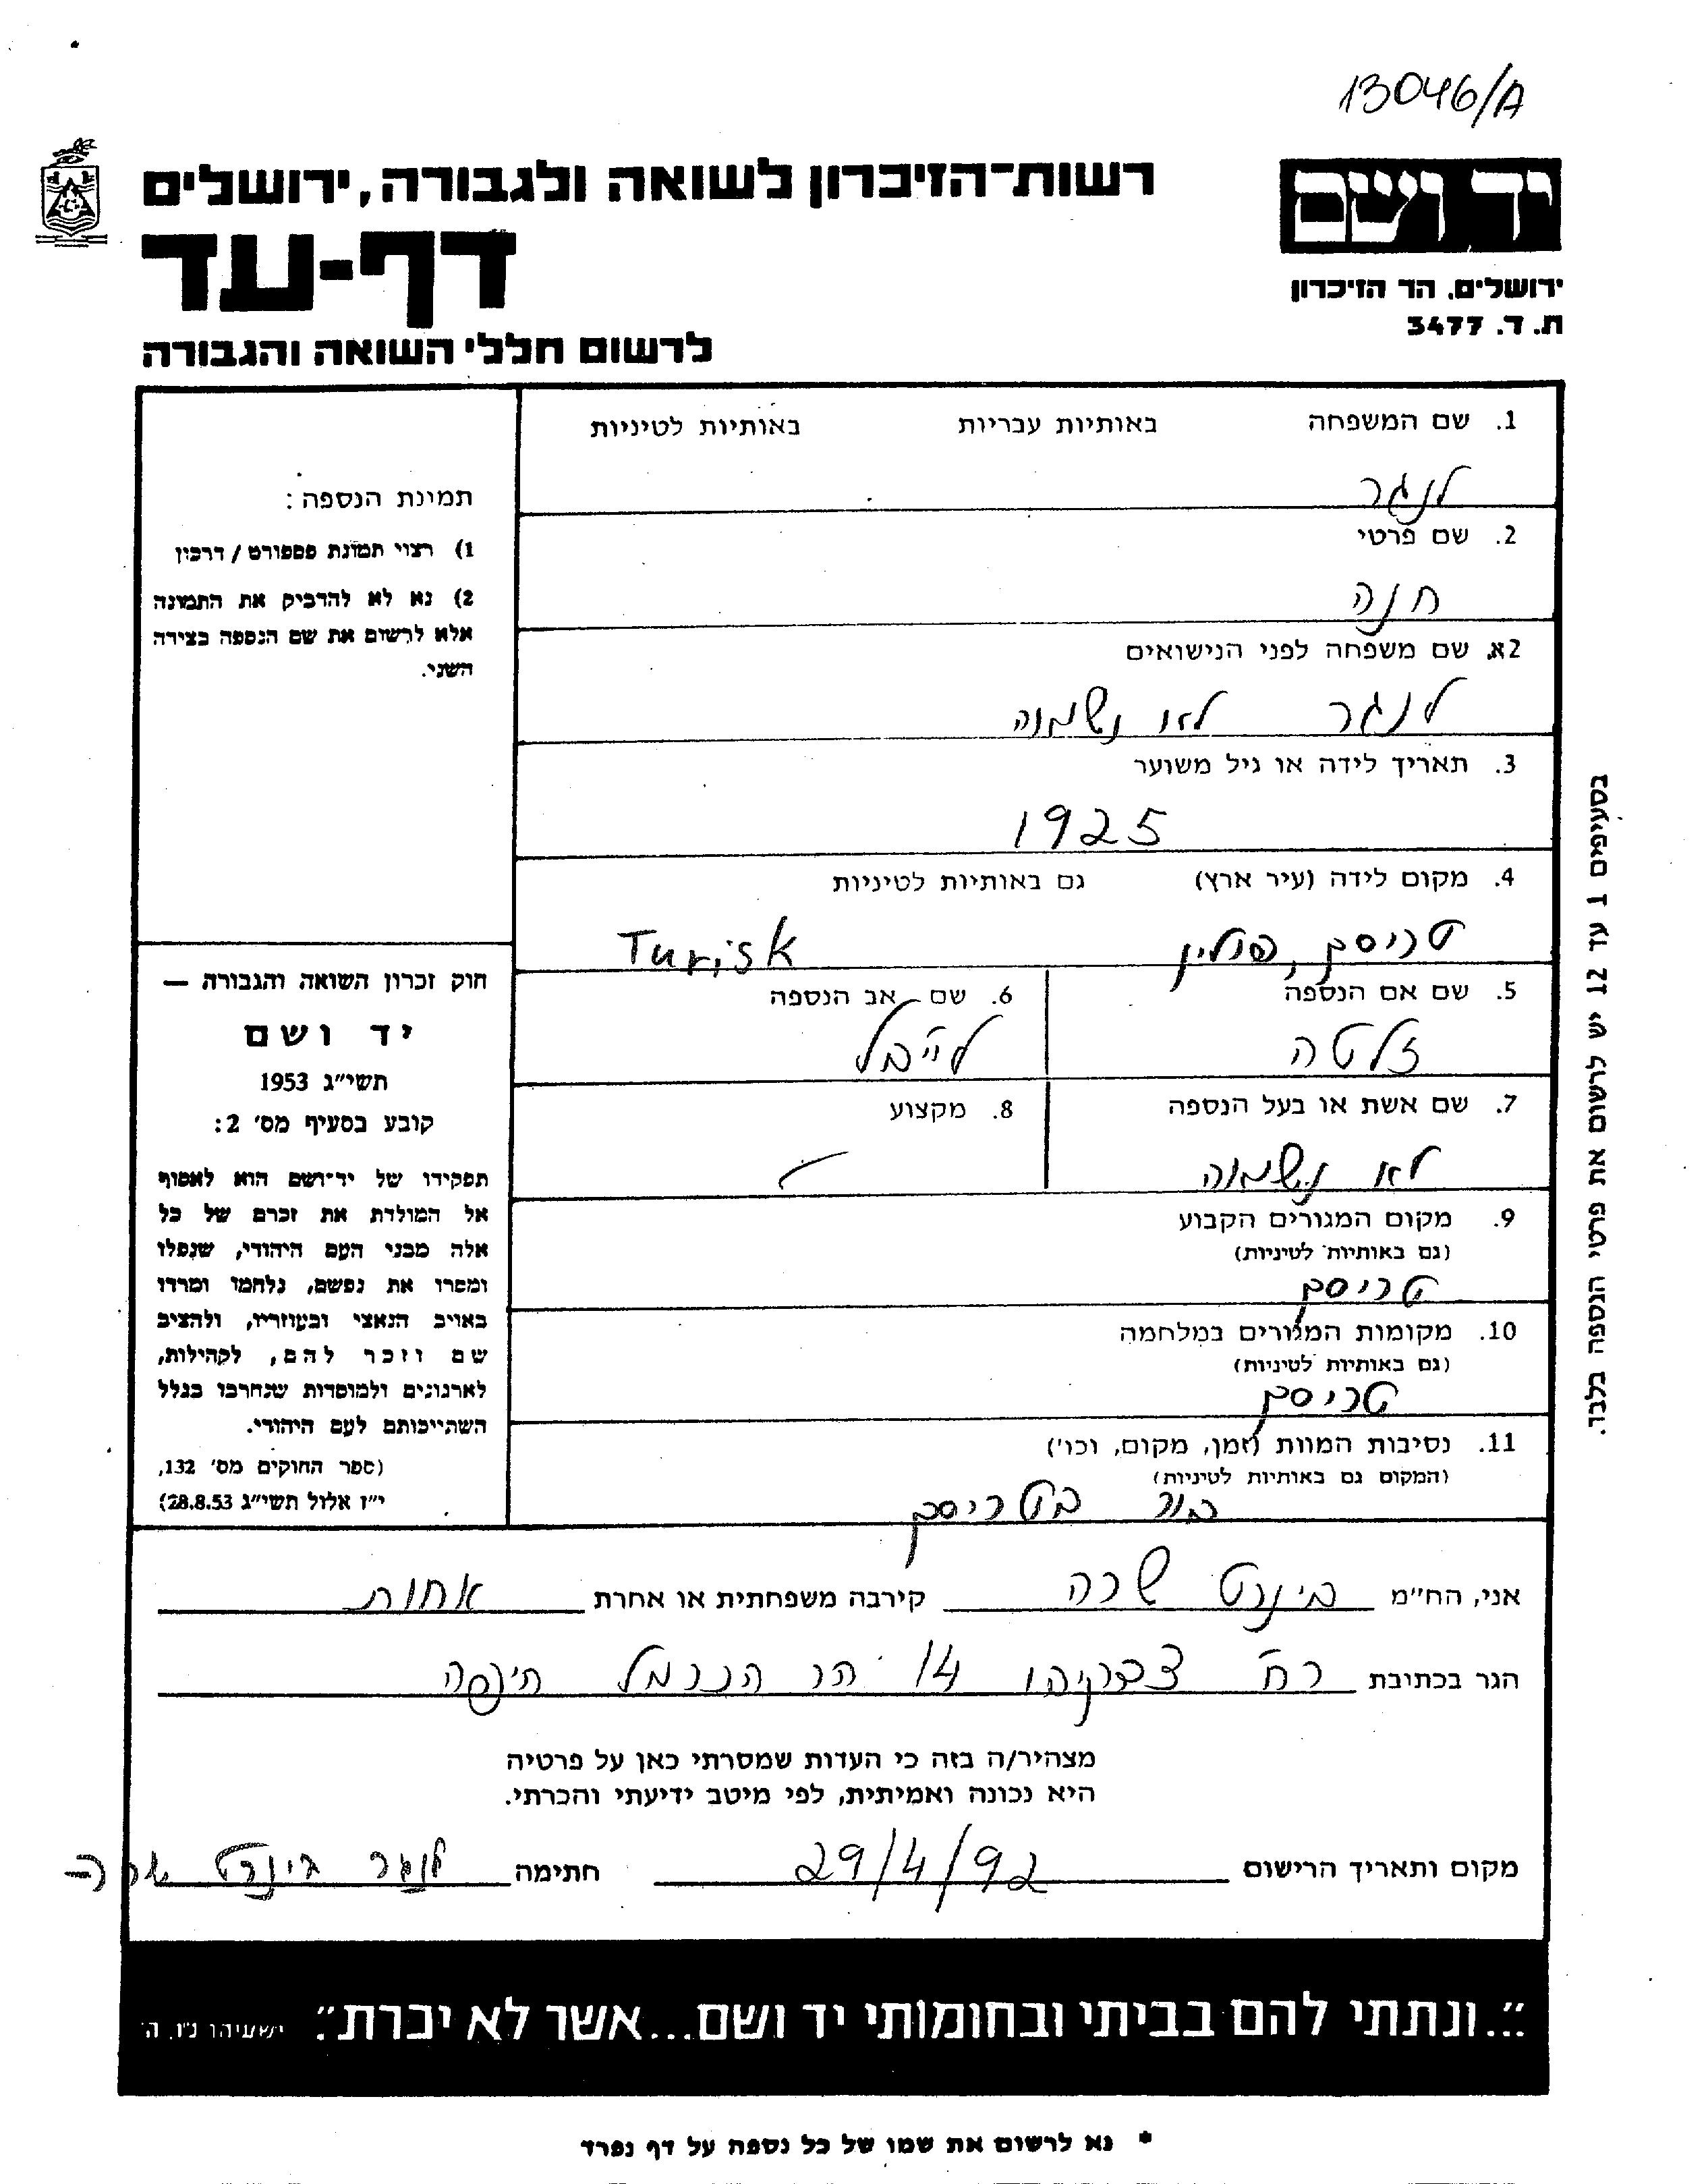 13046/A
יד ושם
רשות־הזיכרון לשואה ולגבורה, ירושלים
דף-עד
ירושלים, הר הזיכרון
ת. ד. 3477
לרשום חללי השואה והגבורה
1. שם המשפחה באותיות עבריות באותיות לטיניות
לנגר
2. שם פרטי
חנה
2א. שם משפחה לפני הנישואים
לנגר לא נשואה
3. תאריך לידה או גיל משוער
1925
4. מקום לידה (עיר ארץ) גם באותיות לטיניות
טריסק, פולין Turisk
5. שם אם הנספה 6. שם אב הנספה
זלטה לייבל
7. שם אשת או בעל הנספה 8. מקצוע
לא נשואה
9. מקום המגורים הקבוע
(גם באותיות לטיניות)
טריסק
10. מקומות המגורים במלחמה
(גם באותיות לטיניות)
טריסק
11. נסיבות המוות (זמן, מקום, וכו')
(המקום גם באותיות לטיניות)
בור בטריסק
תמינת הנספה:
1) רצוי תמונת פספורט / דרכון
2) נא לא להדביק את התמונה
אלא לרשום את שם הנספה בצידה
השני.
חוק זכרון השואה והגבורה —
יד ושם
תשי"ג 1953
קובע בסעיף מס' 2:
תפקידו של יד־ושם הוא לאסוף
אל המולדת את זכרם של כל
אלה מבני העם היהודי, שנפלו
ומסרו את נפשם, נלחמו ומרדו
באויב הנאצי ובעוזריו, ולהציב
שם וזכר להם, לקהילות,
לארגונים ולמוסדות שנחרבו בגלל
השתייכותם לעם היהודי.
(ספר החוקים מס' 132,
י"ז אלול תשי"ג 28.8.53)
בסעיפים 1 עד 12 יש לרשום את פרטי הנספה בלבד.
אני, הח"מ בינרט שרה קירבה משפחתית או אחרת אחות
הגר בכתובת רח' צדקיהו 14 הר הכרמל חיפה
מצהיר/ה בזה כי העדות שמסרתי כאן על פרטיה
היא נכונה ואמיתית, לפי מיטב ידיעתי והכרתי.
מקום ותאריך הרישום 29/4/92 חתימה לנגר בינרט שרה
"...ונתתי להם בביתי ובחומותי יד ושם...אשר לא יכרת". ישעיהו נ"ו, ה'
* נא לרשום את שמו של כל נספה על דף נפרד